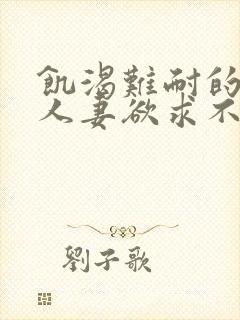 飢渴難耐的
人妻欲求不
劉子歌